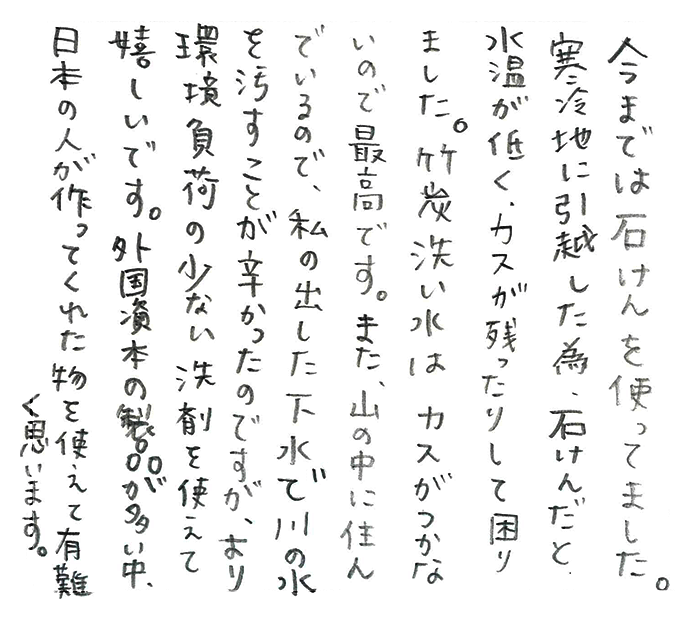 今までは石けんを使ってました。
寒冷地に引越した為、石けんだと、
水温が低く、カスが残ったりして困り
ました。竹炭洗い水は カスがつかな
いので最高です。また、山の中に住ん
でいるので、私の出した下水で川の水
を汚すことが辛かったのですが、より
環境負荷の少ない洗剤を使えて
嬉しいです。外国資本の製品が多い中、
日本の人が作ってくれた物を使えて有難
く思います。